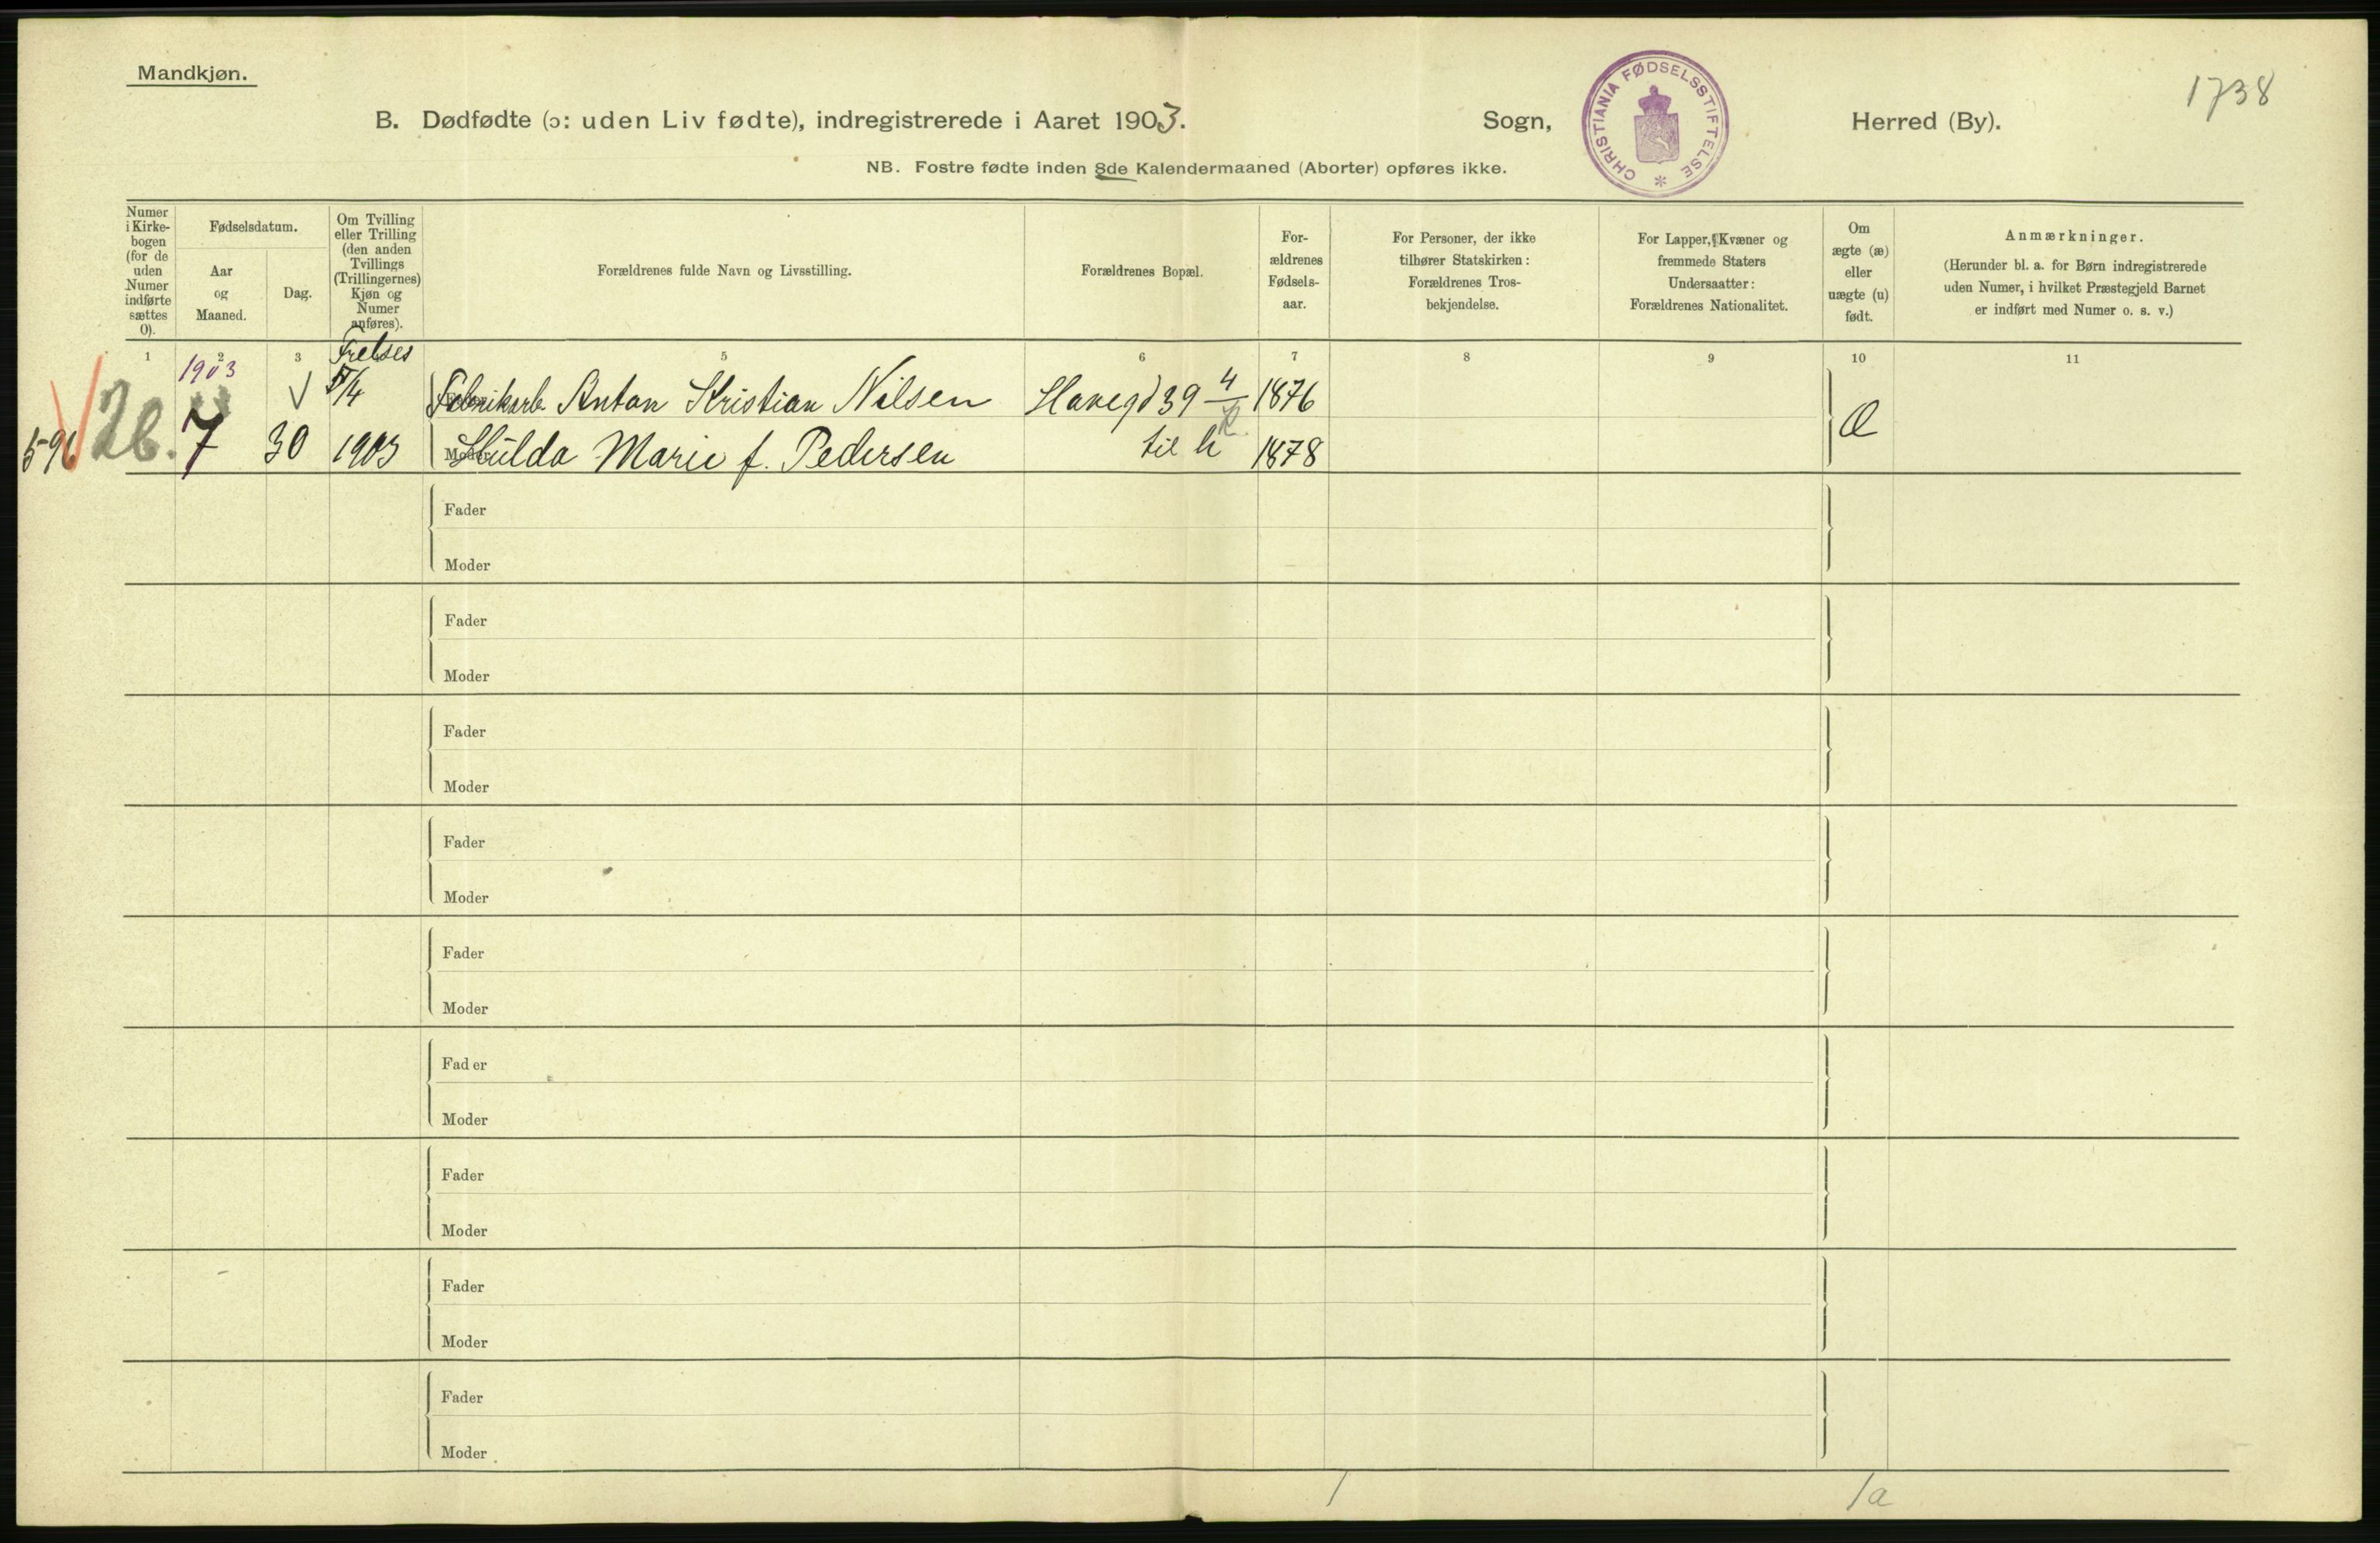 Mandkjøn.
1738
B. Dødfødte (ɔ: uden Liv fødte), indregistrerede i Aaret 1903.
Sogn,
CHRISTIANIA FØDSELSSTIFTELSE *
Herred (By).
NB. Fostre fødte inden 8de Kalendermaaned (Aborter) opføres ikke.
Numer
i Kirke-
bogen
(for de
uden
Numer
indførte
sættes
0).
Fødselsdatum.
Aar
og
Maaned.
Dag.
Om Tvilling
eller Trilling
(den anden
Tvillings
(Trillingernes)
Kjøn og
Numer
anføres).
Forældrenes fulde Navn og Livsstilling.
Forældrenes Bopæl.
For-
ældrenes
Fødsels-
aar.
For Personer, der ikke
tilhører Statskirken:
Forældrenes Tros-
bekjendelse.
For Lapper, Kvæner og
fremmede Staters
Undersaatter:
Forældrenes Nationalitet.
Om
ægte (æ)
eller
uægte (u)
født.
Anmærkninger.
(Herunder bl. a. for Børn indregistrerede
uden Numer, i hvilket Præstegjeld Barnet
er indført med Numer o. s. v.)
1 2 3 5 6 7 8 9 10 11
1903
Fabrikarb. Anton Kristian Nilsen 39 4 1876
596 26. 7 30 1903 Hulda Marie f. Pedersen til h 1878 Æ
Fader
Moder
Fader
Moder
Fader
Moder
Fader
Moder
Fader
Moder
Fader
Moder
Fader
Moder
Fader
Moder
Fader
Moder
1 1a